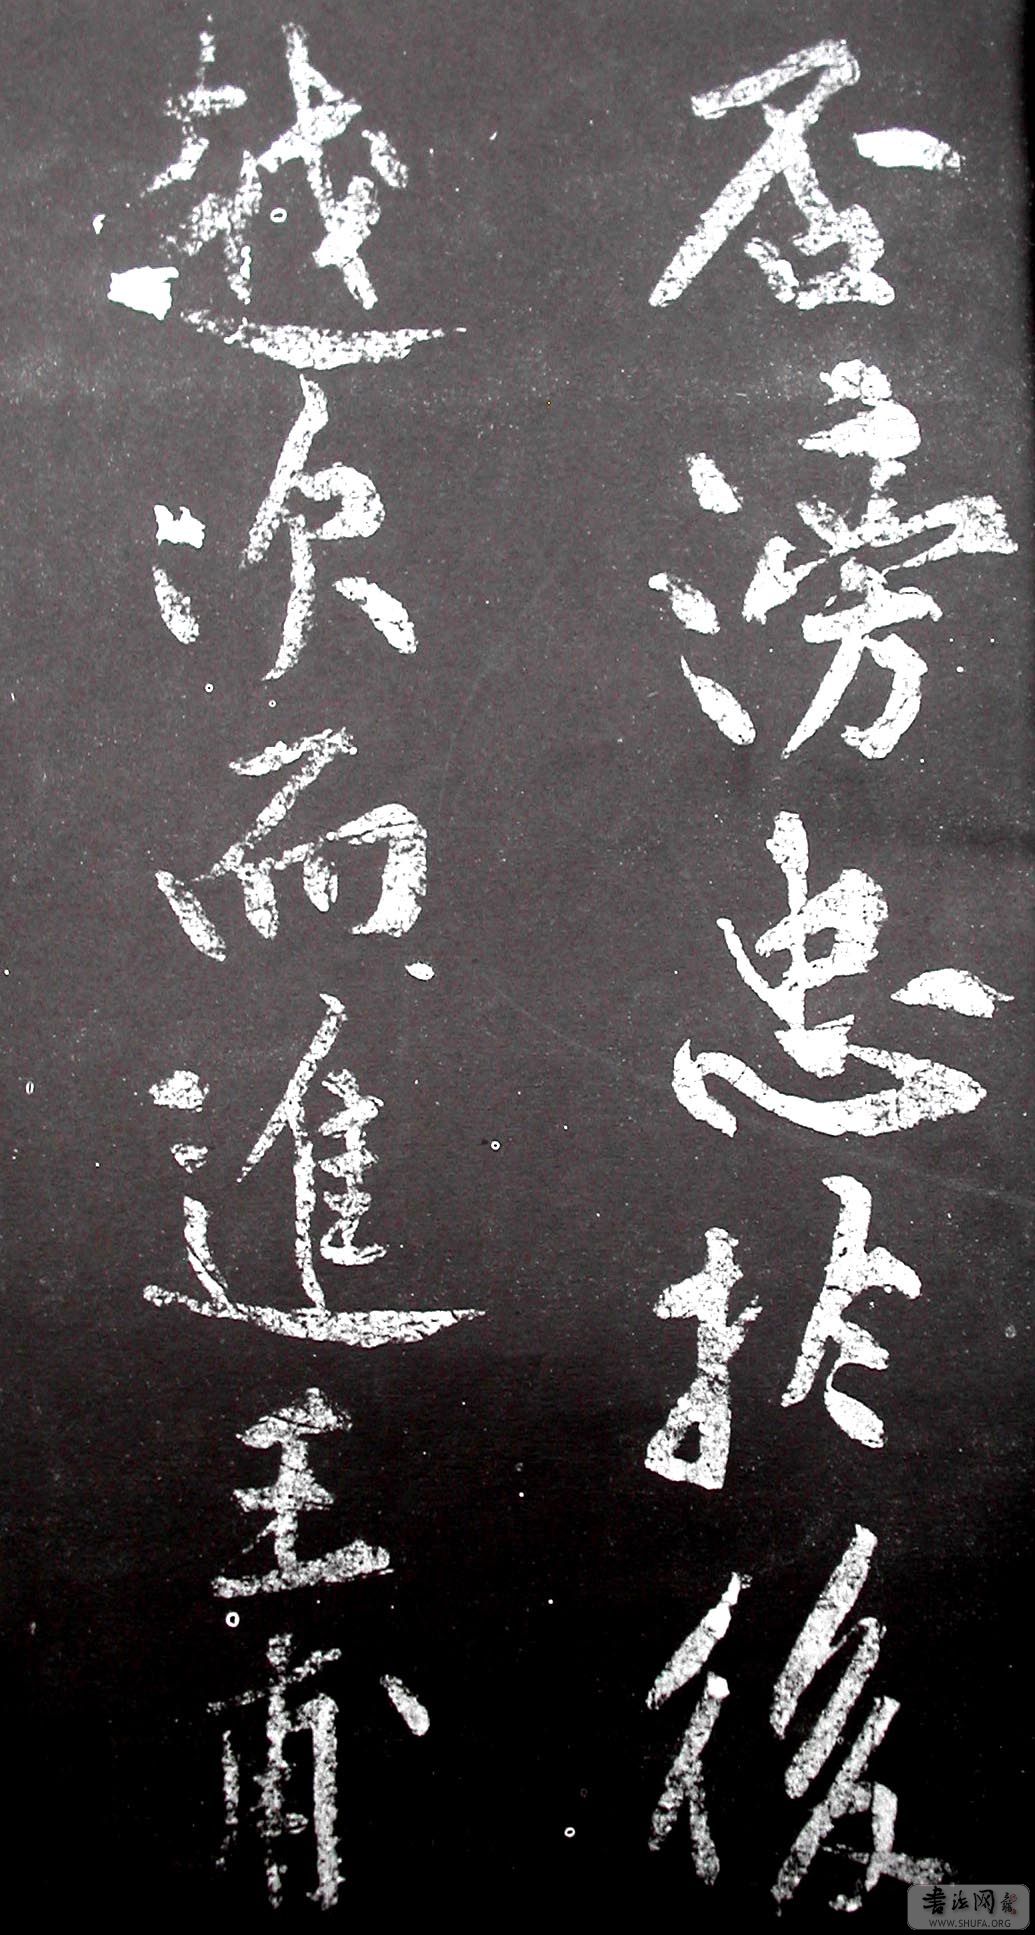 否滂忠於後
越次而進王甫
书法网
WWW.SHUFA.ORG